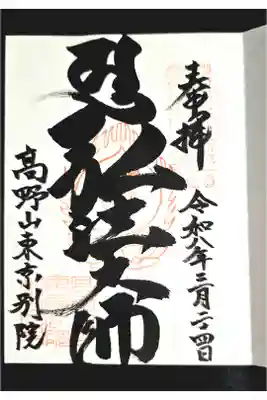 奉拝
令和八年三月二十四日
弘法大師
高野山東京別院